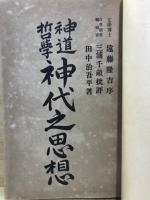 文學博士 遠藤隆吉序
三浦千畝批評
田中治吾平著
神道
哲學
神代之思想